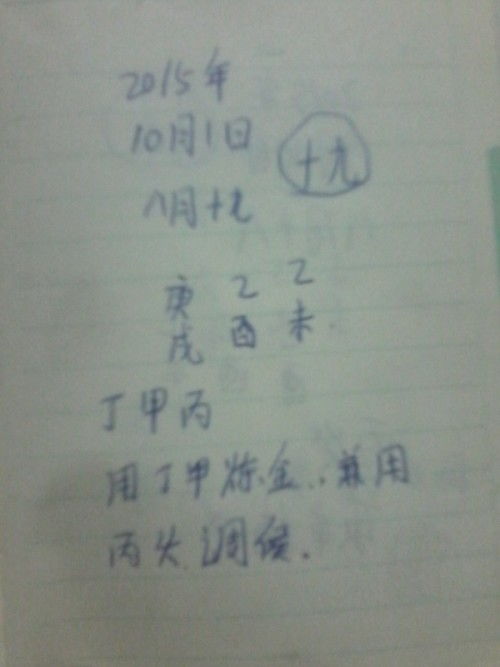 2015年
10月1日
十九
八月十九
庚 乙 乙
戌 酉 未.
丁甲丙
用丁甲炼金..兼用
丙火调候.